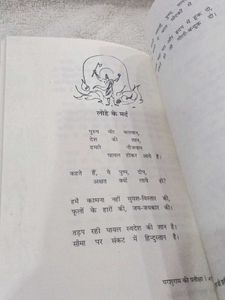 लोहे के मर्द
पुरुष वीर बलवान,
देश की शान,
हमारे नौजवान
घायल होकर आये हैं।
कहते हैं, ये पुष्प, दीप,
अक्षत क्यों लाये हो?
हमें कामना नहीं सुयश-विस्तार की,
फूलों के हारों की, जय-जयकार की।
तड़प रही घायल स्वदेश की शान है।
सीमा पर संकट में हिन्दुस्तान है।
परशुराम की प्रतीक्षा